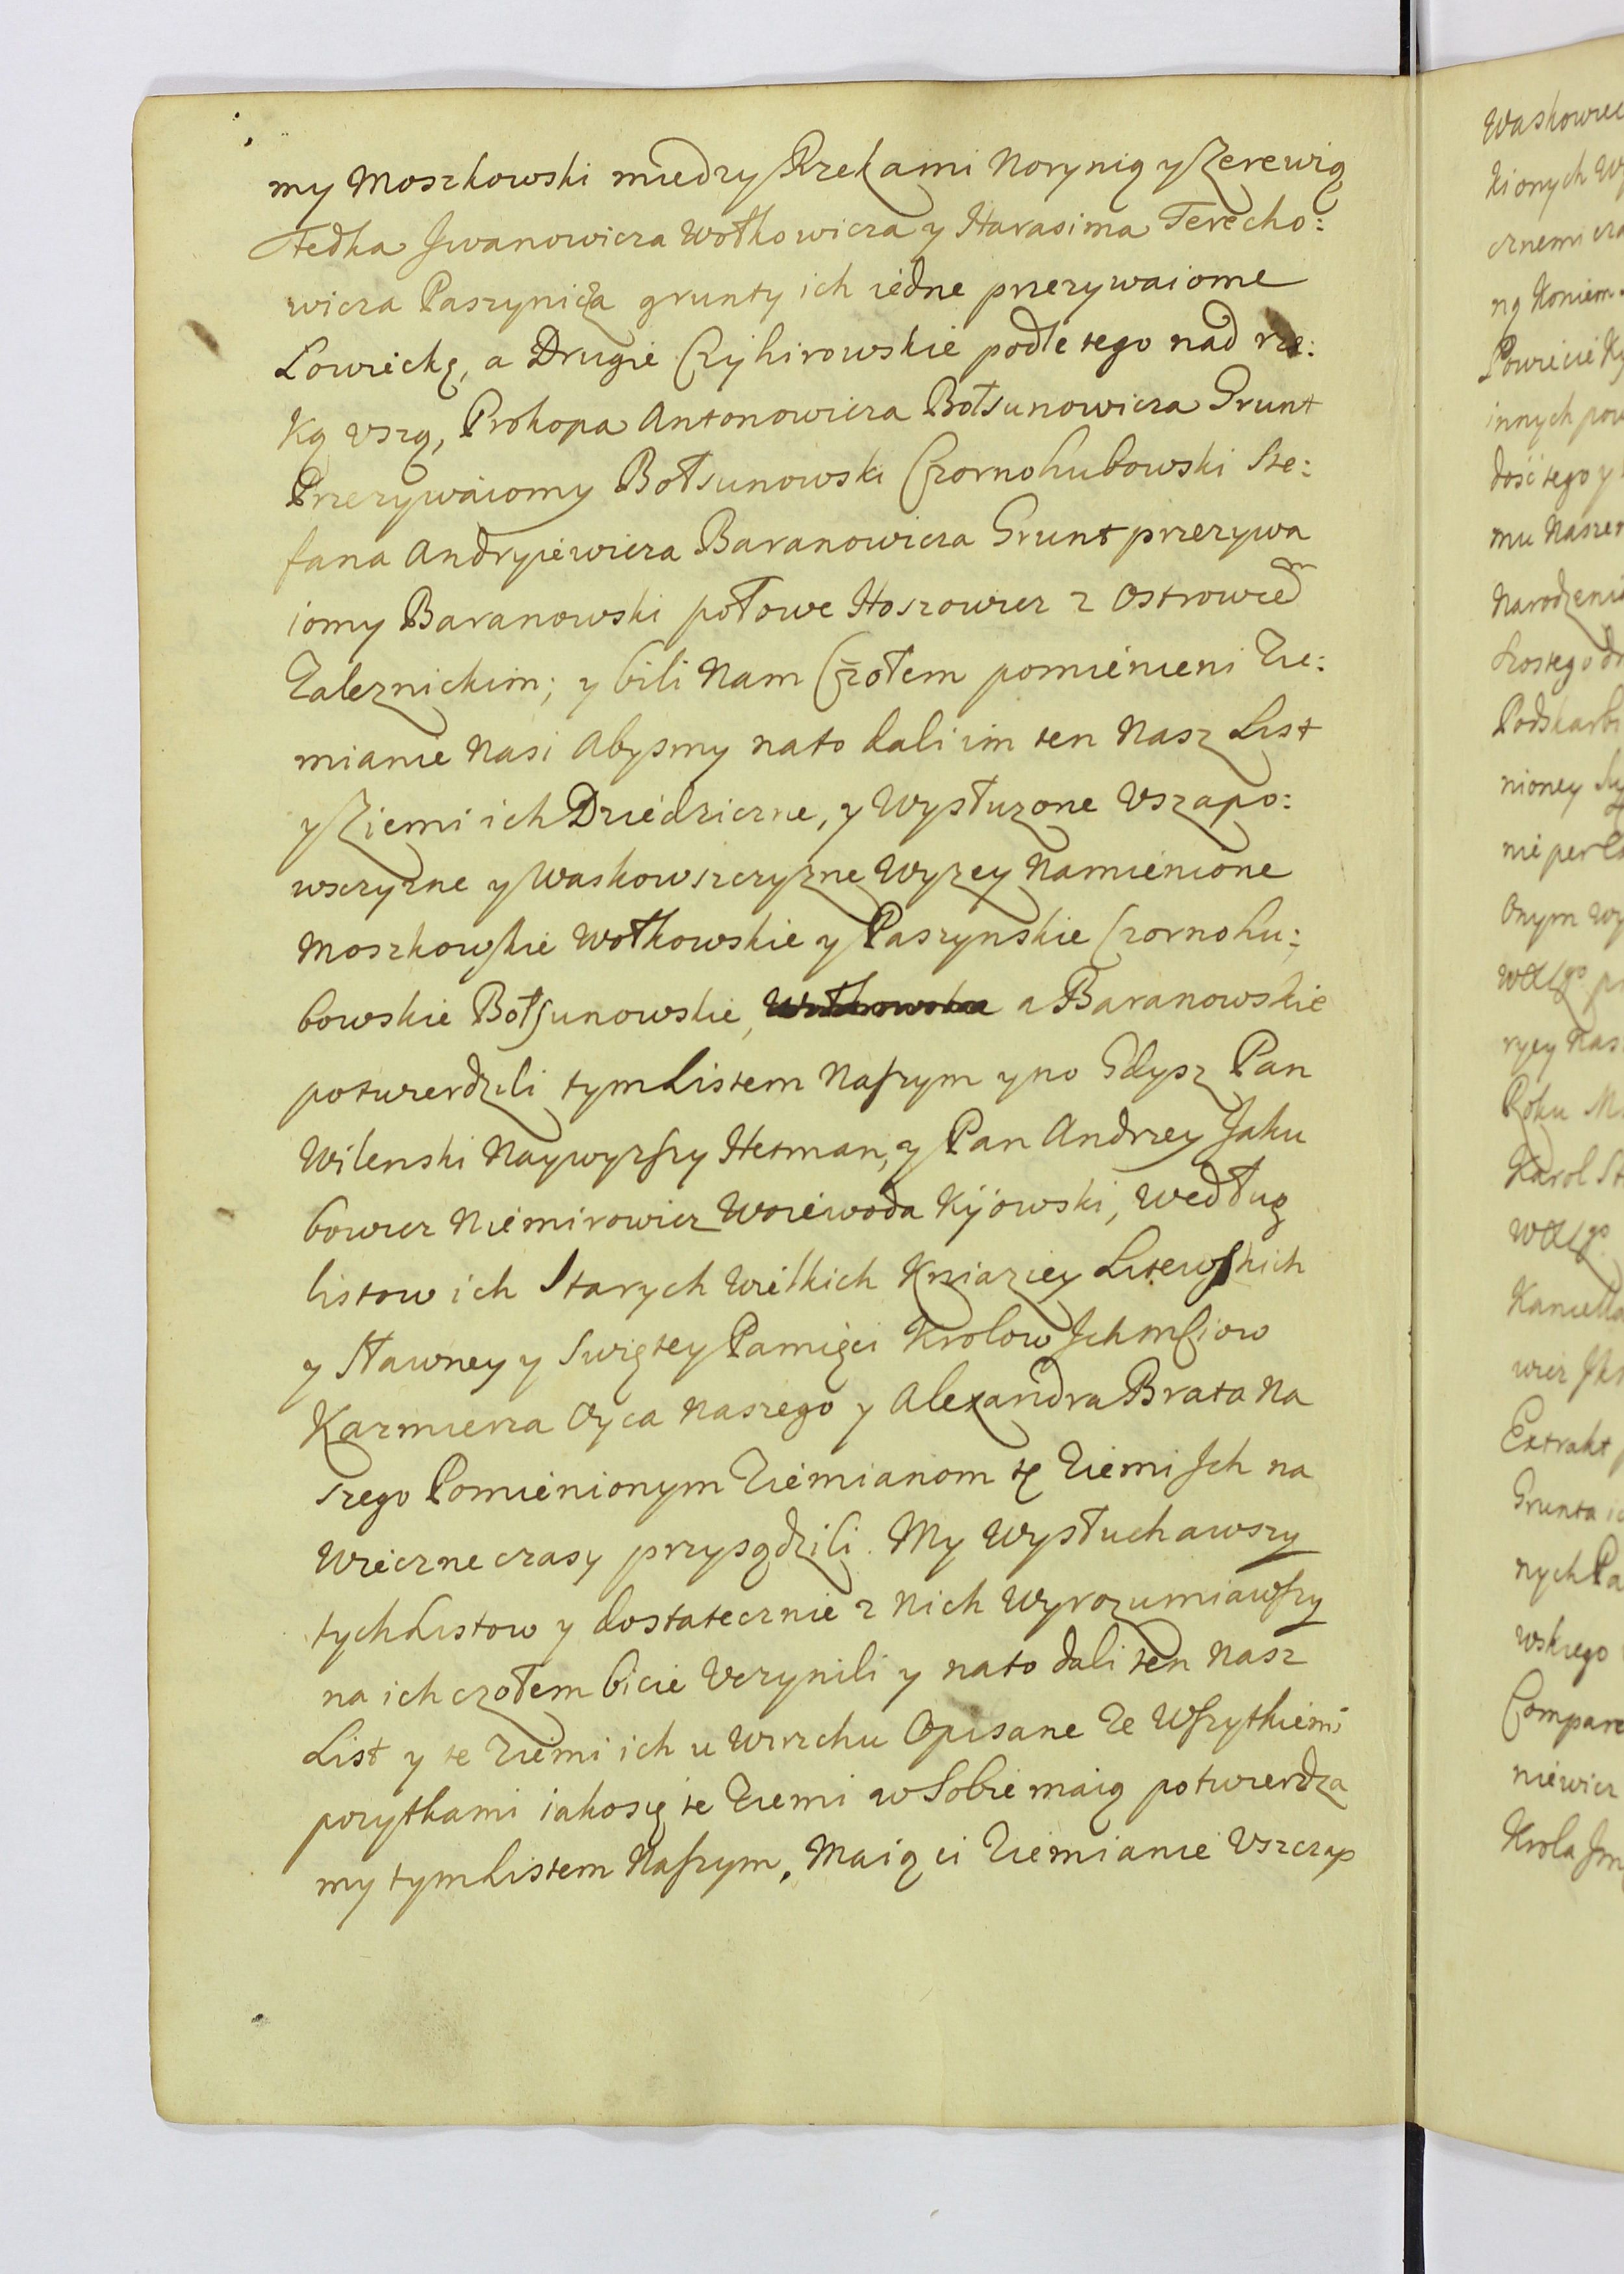 my Moszkowski miedzy Rzekami Norynią y Zerewią
Fedka Jwanowicza Wołkowicza y Harasima Terecho:
wicza Paszynicza grunty ich iedne przezywaiome
Lowieckę, a Drugie Czyhirowskie podle tego nad rze:
Ką Vszą, Prokopa Antonowicza Bołsunowicza Grunt
Przezywaiomy Bołsunowski Czornohubowski Ste:
fana Andryiewicza Baranowicza Grunt przezywa
iomy Baranowski połowe Hoszowicz z Ostrowiem
Zaleznickim; y bili Nam Czołem pomienieni Zie:
mianie Nasi Abysmy nato dali im ten Nasz List
y Ziemi ich Dziedziczne, y Wysłuzone Vszapo:
wszczyzne y Waskowszczyzne Wyzey Namienione
Moszkowskie Wołkowskie y Paszynskie Czornohu:
bowskie Bołsunowskie, a Baranowskie
potwierdzili tym Listem Naszym yno Gdysz Pan
Wilenski Naywyzszy Hetman, y Pan Andrzey Jaku
bowicz Niemirowicz Woiewoda Kijowski, Według
listow ich Starych Wielkich Kniaziey Litewskich
y Sławney y Swiętey Pamięci Krolow Ichmsciow
Kazmierza Oyca Naszego y Alexandra Brata Na
szego Pomienionym Ziemianom tę Ziemi Jch na
Wieczne czasy przysądzili. My Wysłuchawszy
tych Listow y dostatecznie z Nich Wyrozumiawszy
na ich czołem bicie Vczynili y nato dali ten Nasz
List y te Ziemi ich u Wierzchu Opisane Ze Wszytkiemi
pozytkami iakosię te Ziemi w Sobie maią potwierdza
my tym Listem Naszym, Maią ci Ziemianie Vszczap